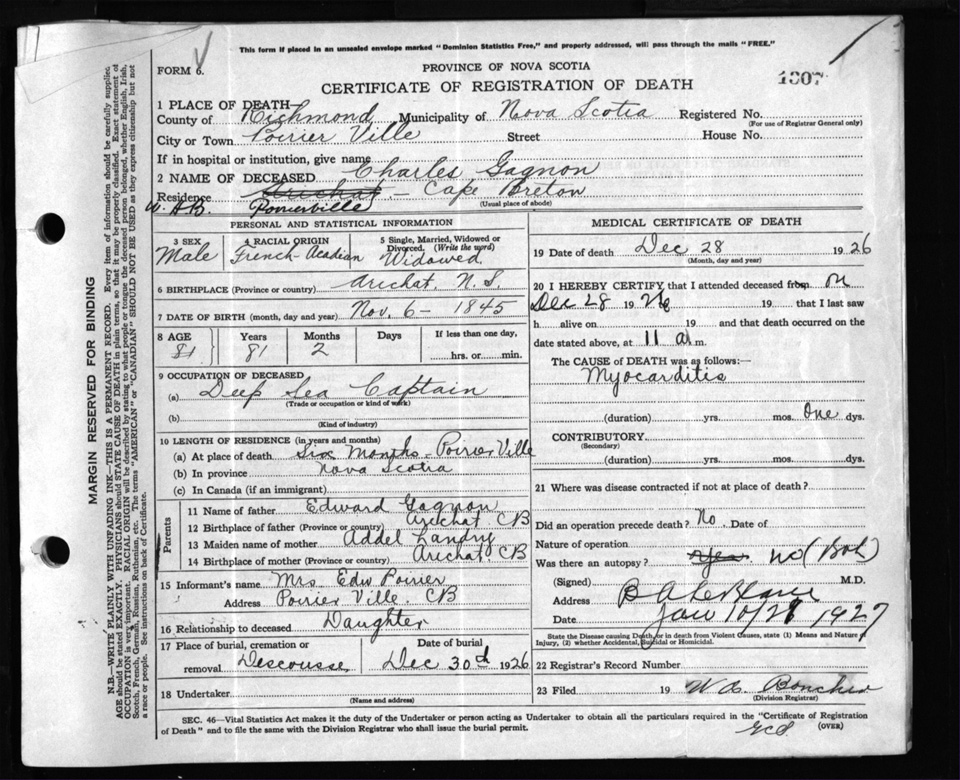 This form if placed in an unsealed envelope marked "Dominion Statistics Free," and properly addressed, will pass through the mails "FREE."
FORM 6.
PROVINCE OF NOVA SCOTIA
1307
CERTIFICATE OF REGISTRATION OF DEATH
1 PLACE OF DEATH—
County of Richmond Municipality of Nova Scotia Registered No.
(For use of Registrar General only)
City or Town Poirier Ville Street House No.
If in hospital or institution, give name
2 NAME OF DECEASED Charles Gagnon
Residence Arichat - Cape Breton
(Usual place of abode)
W. A B. Poirierville
PERSONAL AND STATISTICAL INFORMATION
3 SEX
Male
4 RACIAL ORIGIN
French-Acadian
5 Single, Married, Widowed or Divorced. (Write the word)
Widowed
6 BIRTHPLACE (Province or country) Arichat, N. S.
7 DATE OF BIRTH (month, day and year) Nov. 6 - 1845
8 AGE Years Months Days If less than one day,
81 81 2 hrs. or min.
9 OCCUPATION OF DECEASED
(a) Deep Sea Captain
(Trade or occupation or kind of work)
(b)
(Kind of industry)
10 LENGTH OF RESIDENCE (in years and months)
(a) At place of death Six Months - Poirier Ville
(b) In province Nova Scotia
(c) In Canada (if an immigrant)
Parents
11 Name of father Edward Gagnon
12 Birthplace of father (Province or country) Arichat CB
13 Maiden name of mother Addel Landry
14 Birthplace of mother (Province or country) Arichat CB
15 Informant's name Mrs Edw Poirier
Address Poirier Ville. CB
16 Relationship to deceased Daughter
17 Place of burial, cremation or removal Descousse
Date of burial
Dec 30th 1926
18 Undertaker
(Name and address)
MEDICAL CERTIFICATE OF DEATH
19 Date of death Dec 28 1926
(Month, day and year)
20 I HEREBY CERTIFY that I attended deceased from on
Dec 28 1926 19 that I last saw
h alive on 19 and that death occurred on the
date stated above, at 11 a m.
The CAUSE OF DEATH was as follows:—
Myocarditis
(duration) yrs. mos. One dys.
CONTRIBUTORY
(Secondary)
(duration) yrs. mos. dys.
21 Where was disease contracted if not at place of death?
Did an operation precede death? No. Date of
Nature of operation
Was there an autopsy? Yes. No
(Signed) M.D.
Address B A LeBlanc
Date Jan 10/27 1927
State the Disease causing Death, or in death from Violent Causes, state (1) Means and Nature of Injury, (2) whether Accidental, Suicidal or Homicidal.
22 Registrar's Record Number
23 Filed 19 W. A. Boucher
(Division Registrar)
SEC. 46—Vital Statistics Act makes it the duty of the Undertaker or person acting as Undertaker to obtain all the particulars required in the "Certificate of Registration
of Death" and to file the same with the Division Registrar who shall issue the burial permit.
(OVER)
MARGIN RESERVED FOR BINDING
N.B.—WRITE PLAINLY WITH UNFADING INK—THIS IS A PERMANENT RECORD. Every item of information should be carefully supplied.
AGE should be stated EXACTLY. PHYSICIANS should STATE CAUSE OF DEATH in plain terms, so that it may be properly classified. Exact statement of
OCCUPATION is very important. RACIAL ORIGIN will be described by stating to what people or tongue the deceased person belonged, whether English, Irish,
Scotch, French, German, Russian, Ruthenian, etc. The terms "AMERICAN" or "CANADIAN" SHOULD NOT BE USED as they express citizenship but not
a race or people. See instructions on back of Certificate.